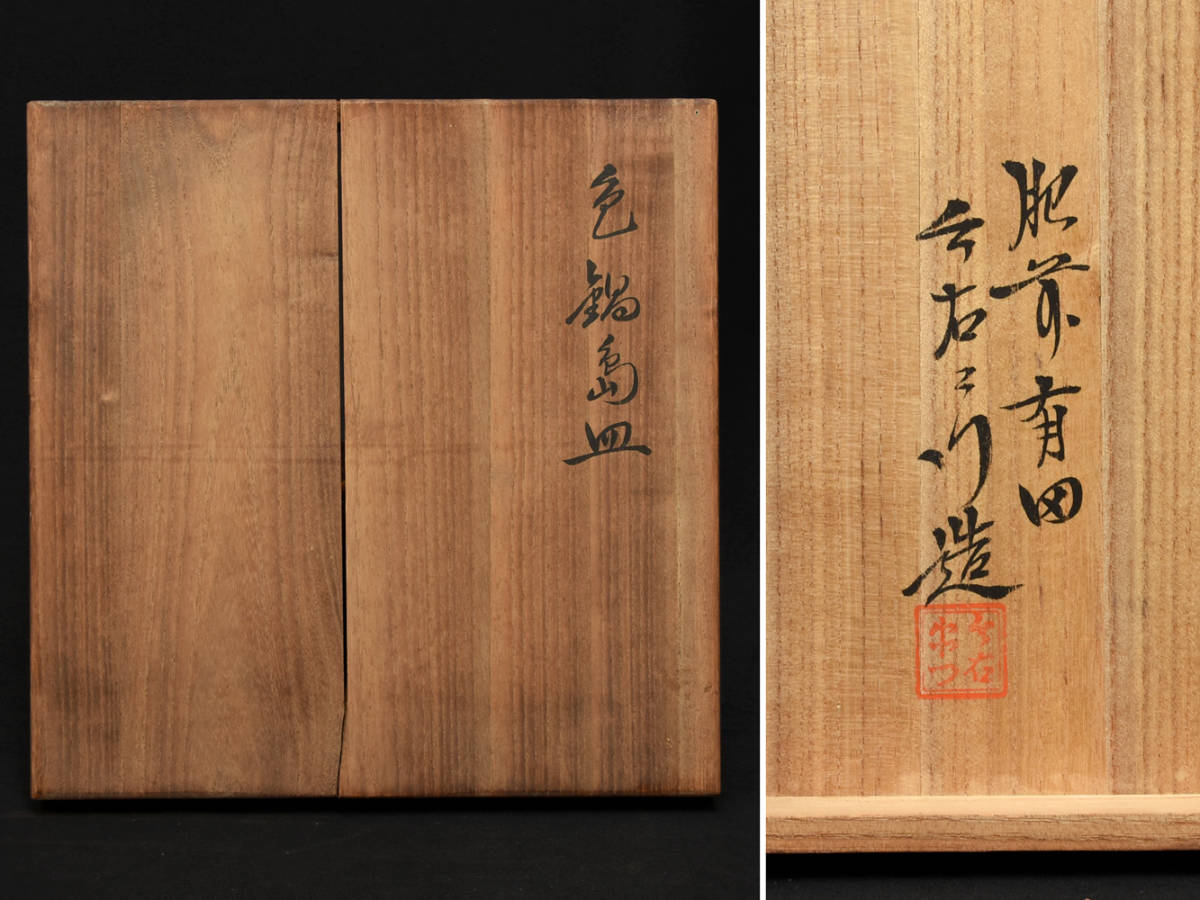 色鍋島皿
肥前有田
今右ヱ門造
今右
衛門